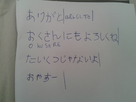 ありがと
おくさんにもよろしくね
たいくつじゃないよ
おやすー